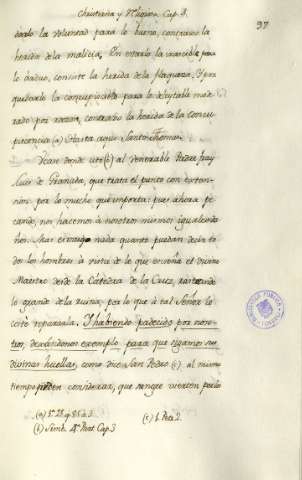 Christiana y Cap. 3.
97
darle la voluntad para lo bueno, contraxo la
herida de la malicia. En estarlo la irascible para
lo árduo, consiste la herida de la flaqueza. Y por
quedarle la concupiscible para lo deleytable mode
rado por razon, contraxo la herida de la concu
piscencia (a) Hasta aqui Santo Thomas.
Vean donde cito (b) al Venerable Padre fray
Luis de Granada, que trata el punto con exten-
sion por lo mucho que importa: pues ahora pe
cando, nos hacemos à nosotros mismos iguales da
ños. Mas es nada quanto puedan decir to
dos los hombres à vista de lo que enseña el divino
Maestro desde la Cátedra de la Cruz,
lo grande de la ruina, por lo que à tal Señor le
costó repararla. Y habiendo padecido por noso-
tros, dexándonos exemplo, para que sigamos sus
divinas huellas, como dice San Pedro (c). al mismo
tiempo pueden considerar, que sangre vierten por lo
(a) 1ª 2æ q. 85 a. 3.
(b) Simb. 4ª Part. Cap. 3
(c) 1. Petr. 2.
BIBLIOTECA PUBLICA